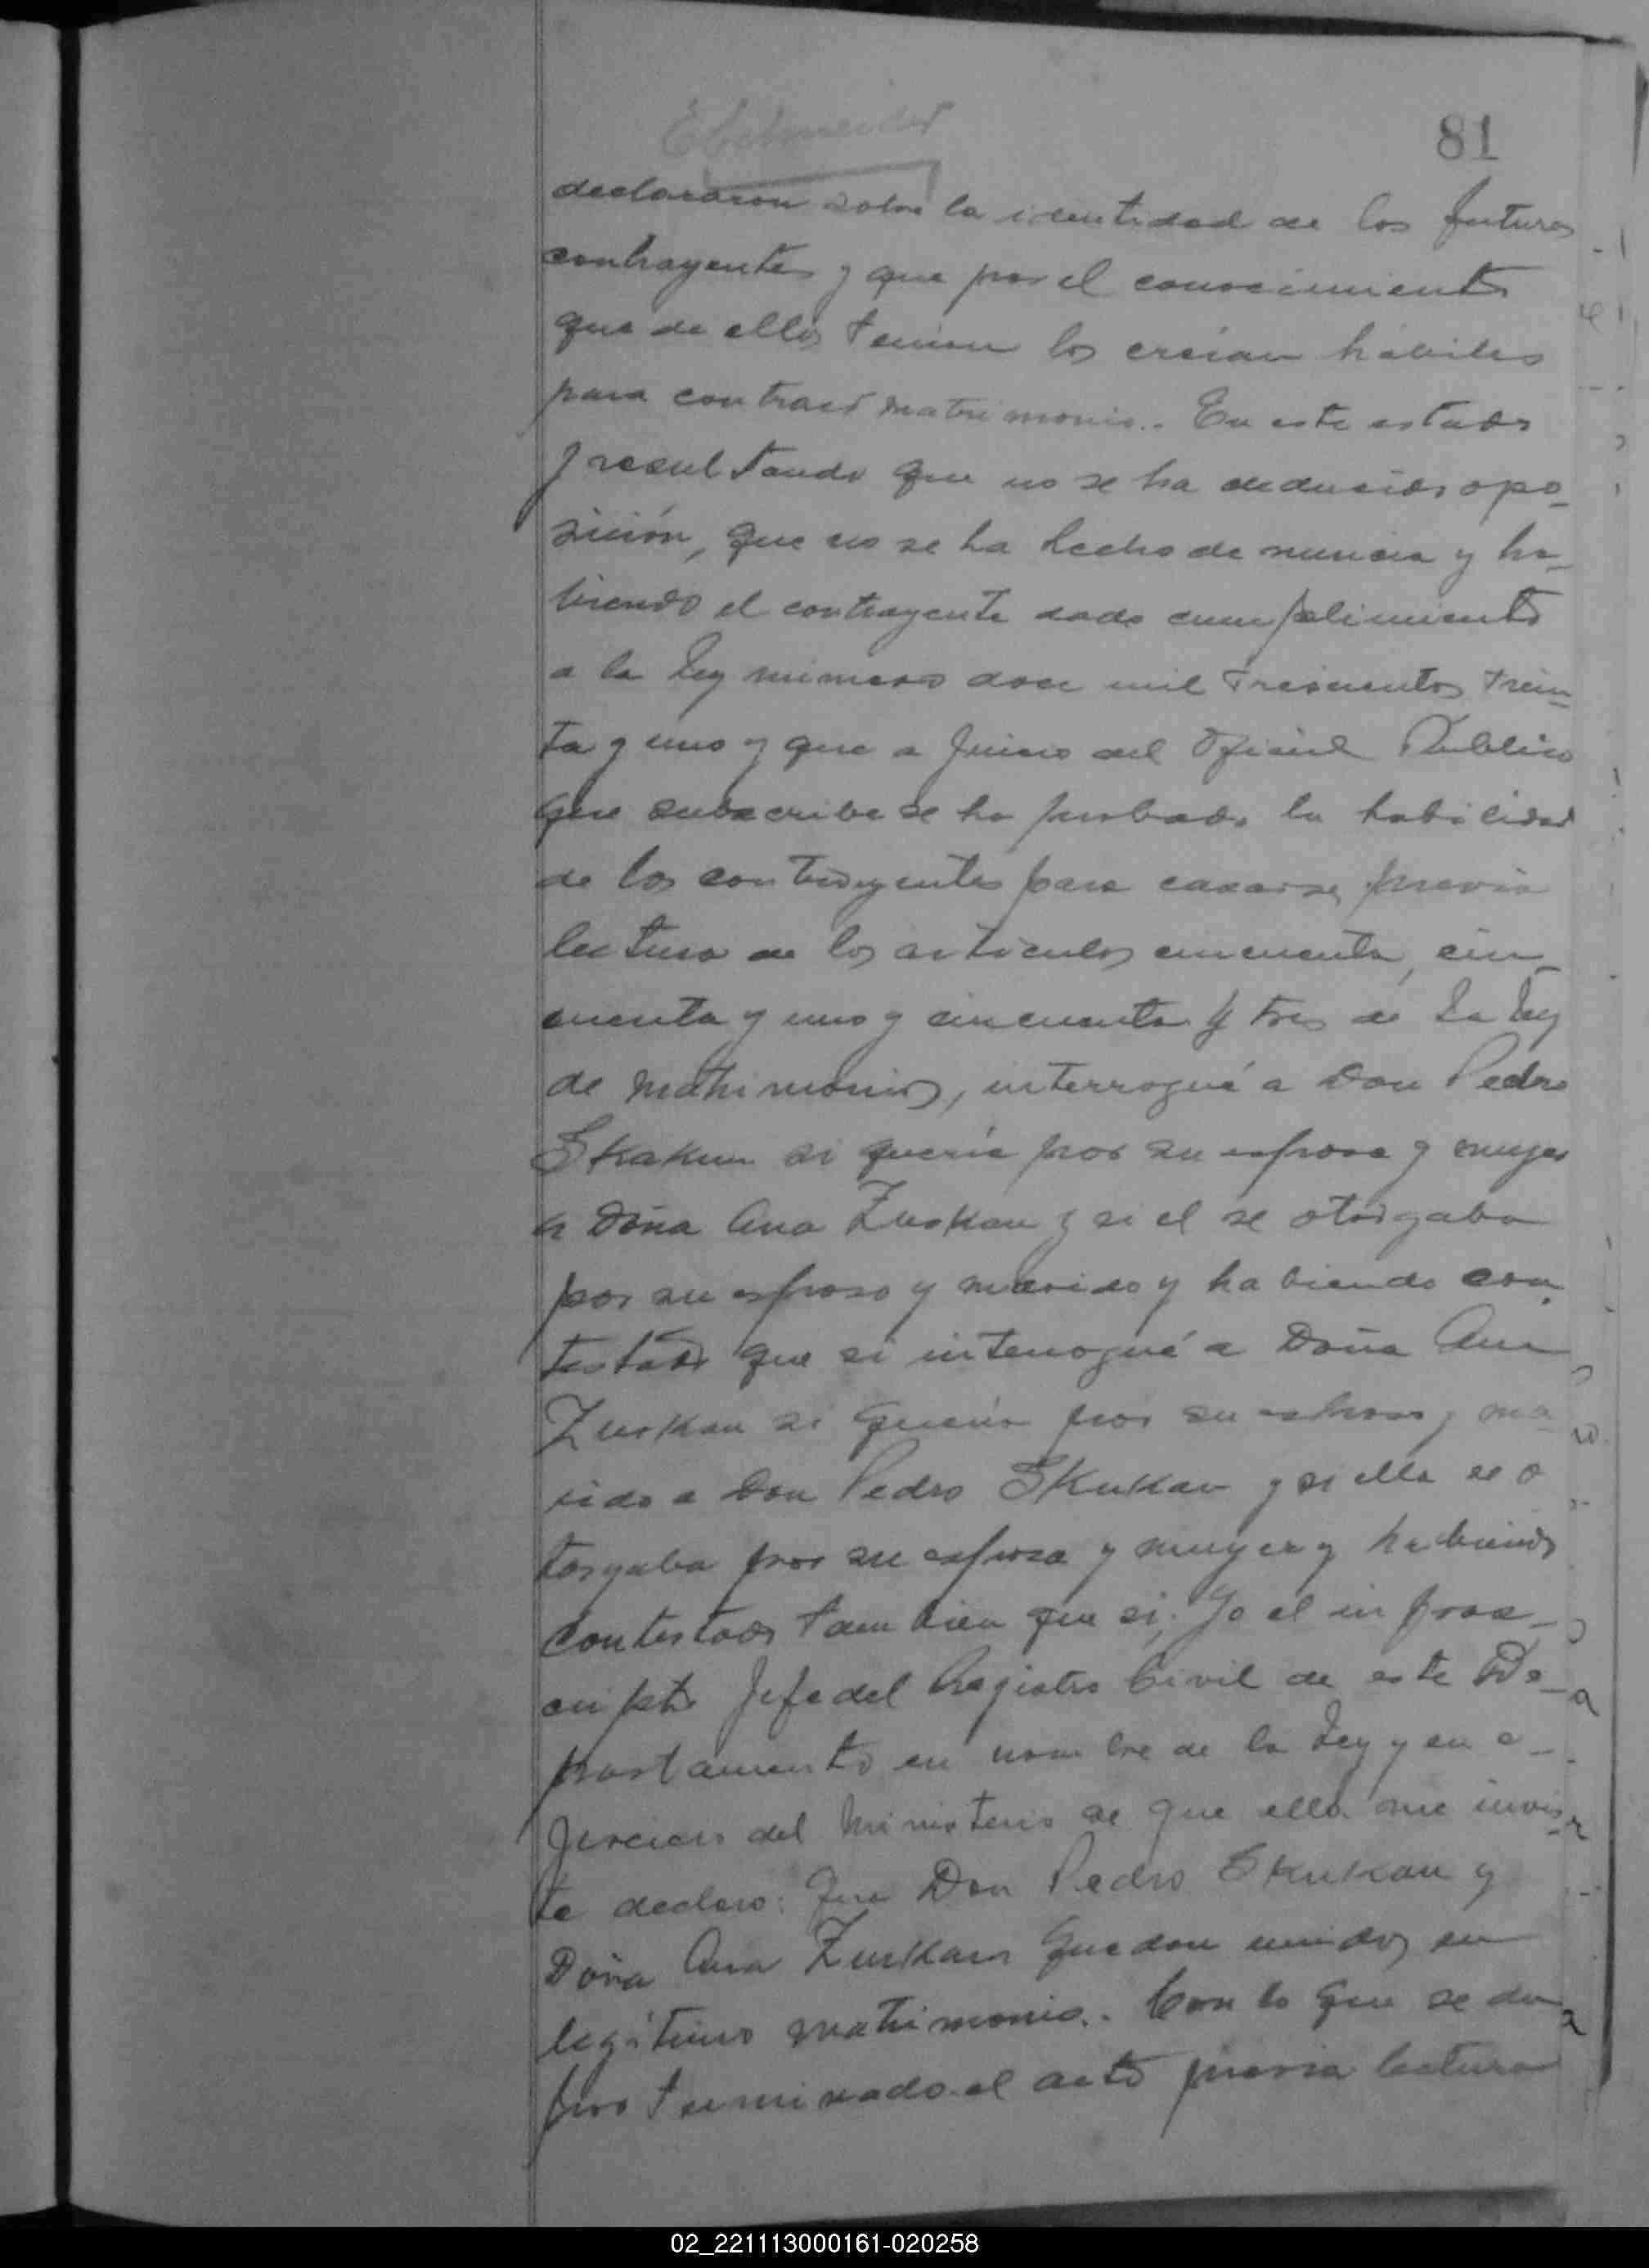 81
declararon sobre la identidad de los futuros
contrayentes y que por el conocimiento
que de ellos tenian los creían hábiles
para contraer matrimonio.. En este estado
y resultando que no se ha deducido opo-
sición, que no se ha hecho denuncia y ha-
biendo el contrayente dado cumplimiento
a la Ley número doce mil trescientos trein-
ta y uno y que a juicio del Oficial Publico
que subscribe se ha probado la habilidad
de los contrayentes para casarse, previa
lectura de los artículos cincuenta, cin-
cuenta y uno y cincuenta y tres de la Ley
de matrimonio, interrogué a Don Pedro
Skakun si quería por su esposa y mujer
a Doña Ana Zuskan y si el se otorgaba
por su esposo y marido y habiendo con-
testado que si interrogué a Doña Ana
Zuskan si quería por su esposo y ma
rido a Don Pedro Skukan y si ella se o
torgaba por su esposa y mujer y habiendo
contestado tambien que si; Yo el infras-
cripto Jefe del Registro Civil de este De-
partamento en nombre de la Ley y en e-
jercicio del Ministerio de que ella me invis-
te declaro: Que Don Pedro Skukan y
Doña Ana Zuskan quedan unidos en
legítimo matrimonio.. Con lo que se dio
por terminado el acto previa lectura
02_221113000161-020258